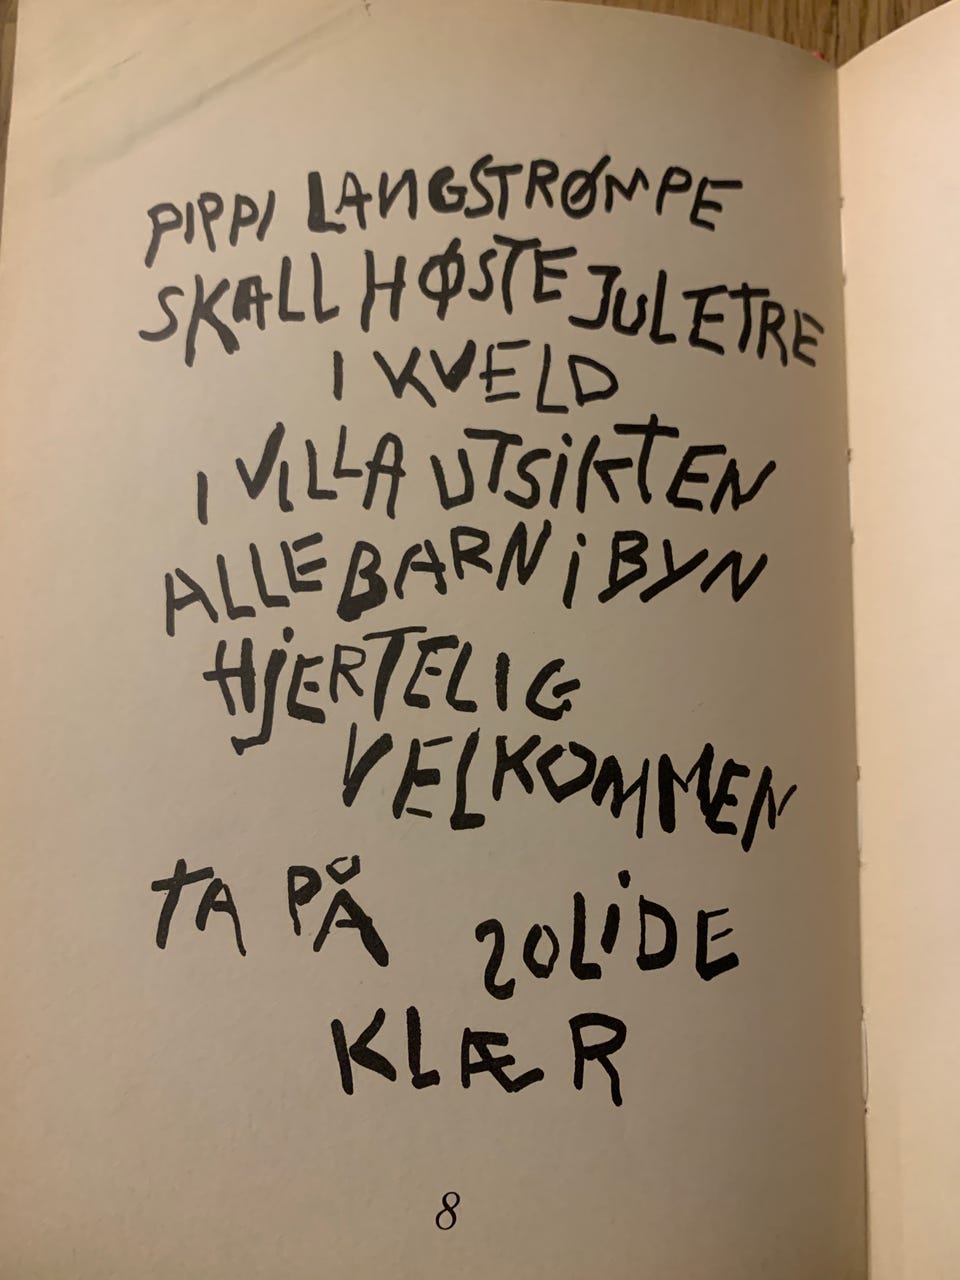 PIPPI LANGSTRØMPE
SKALL HØSTE JULETRE
I KVELD
I VILLA UTSiKTEN
ALLE BARN i BYN
HjERTELIG
VELKOMMEN
TA PÅ SOLiDE
KLÆR
8